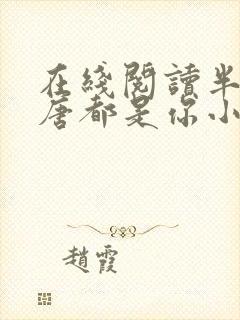 在綫閱讀半
唐都是你小
趙霞